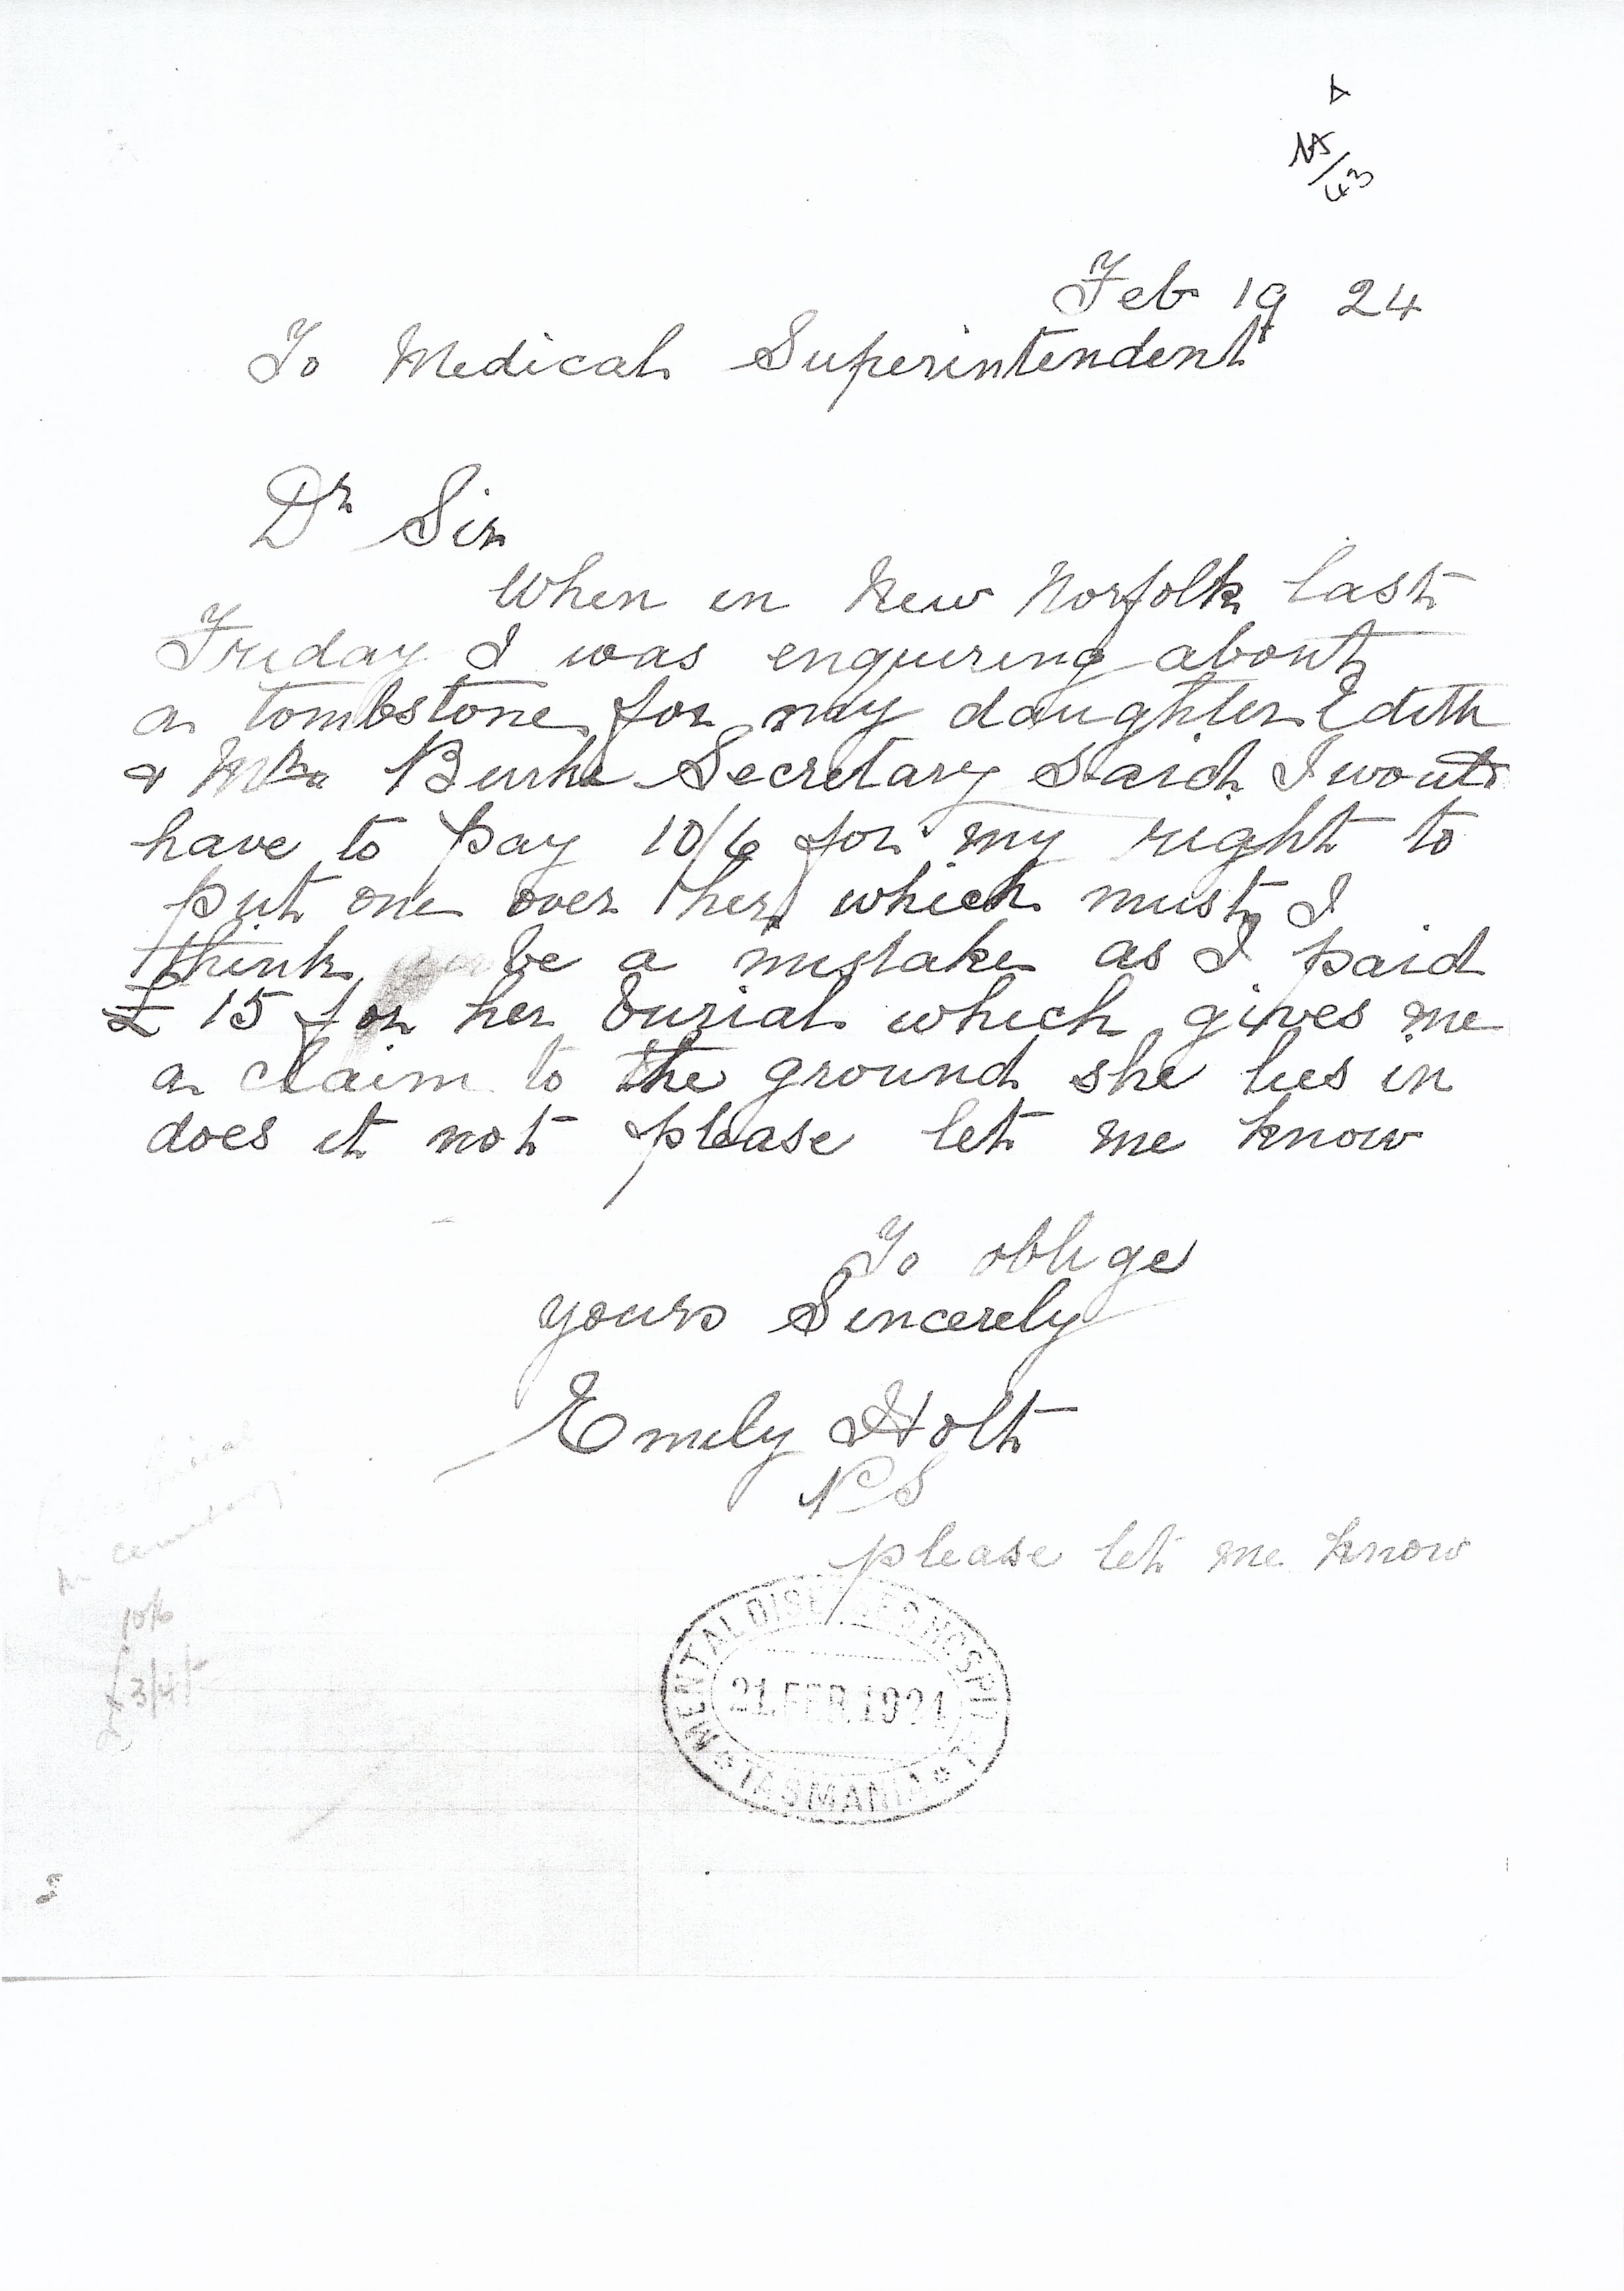 Feb 19 24
To Medical Superintendent
Dr Sir
When in New Norfolk last
Friday I was enquiring about
a tombstone for my daughter Edith
& Burke Secretary said I would
have to pay 10/6 for my right to
put one over her which must I
think be a mistake as I paid
£15 for her burial which gives me
a claim to the ground she lies in
does it not please let me know
To oblige
yours Sincerely
Emily Holt
PS
please let me know
cemetery
10/6
MENTAL DISEASES HOSPITAL
21. FEB. 1924
* TASMANIA *